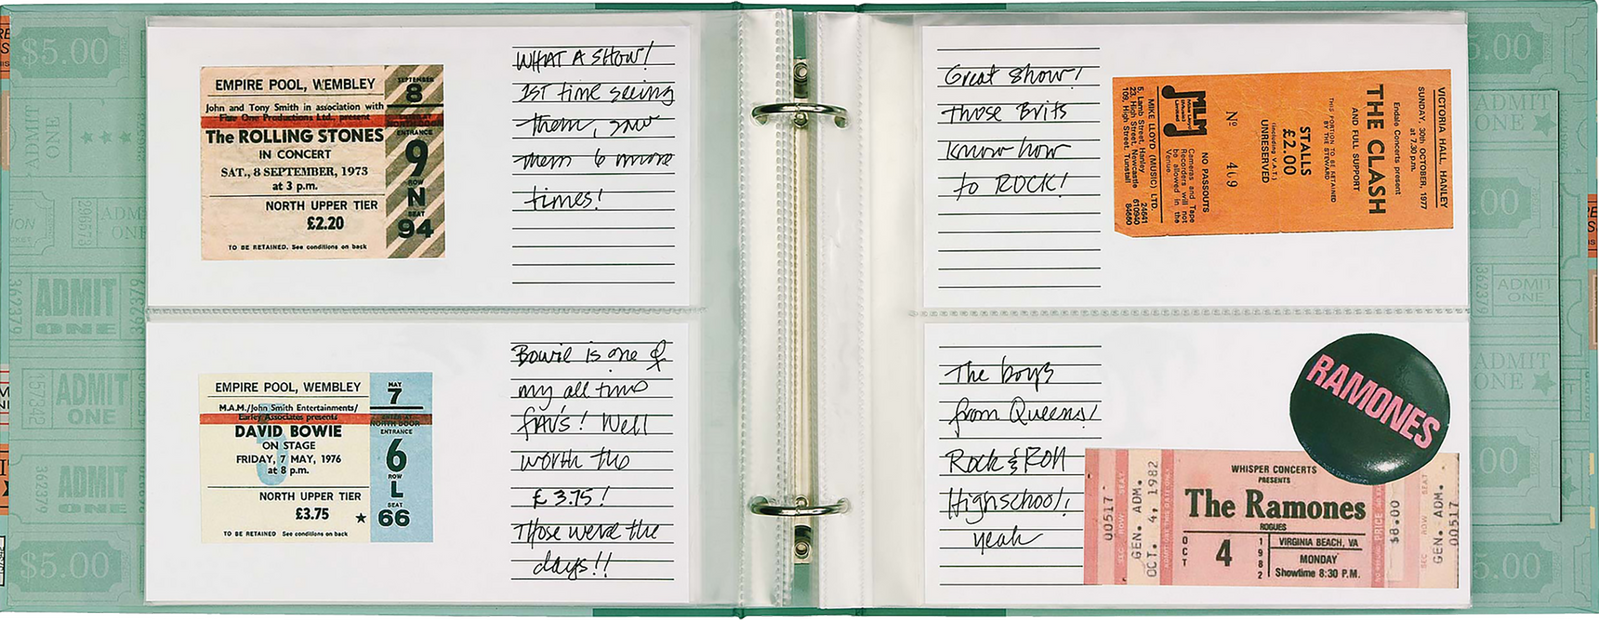 $5.00
ADMIT
ONE
ADMIT
ONE
296573
ADMIT
ONE
362379
ADMIT
ONE
362379
15732
ADMIT
ONE
362379
ADMIT
ONE
$5.00
EMPIRE POOL, WEMBLEY
John and Tony Smith in association with
Fine One Productions Ltd., present
The ROLLING STONES
IN CONCERT
SAT., 8 SEPTEMBER, 1973
at 3 p.m.
NORTH UPPER TIER
£2.20
TO BE RETAINED. See conditions on back
SEPTEMBER
8
ENTRANCE
9
ROW
N
SEAT
94
WHAT A SHOW!
1ST time seeing
them, saw
them 6 more
times!
EMPIRE POOL, WEMBLEY
M.A.M./John Smith Entertainments/
Earley Associates presents
DAVID BOWIE
ON STAGE
FRIDAY, 7 MAY, 1976
at 8 p.m.
NORTH UPPER TIER
£3.75
TO BE RETAINED See conditions on back
MAY
7
NORTH DOOR
ENTRANCE
6
ROW
L
SEAT
★ 66
Bowie is one of
my all time
FAV'S! Well
worth the
£3.75!
Those were the
days!!
Great show!
Those Brits
know how
to ROCK!
VICTORIA HALL, HANLEY
SUNDAY, 30th OCTOBER, 1977
at 7.30 p.m.
Endale Concerts present
THE CLASH
AND FULL SUPPORT
THIS PORTION TO BE RETAINED
BY THE STEWARD
STALLS
£2.00
(Including V.A.T.)
UNRESERVED
Nº 409
NO PASSOUTS
Cameras and Tape
Recorders will not
be allowed in the
Venue.
MLM
MIKE LLOYD (MUSIC) LTD.
5, Lamb Street, Hanley 24641
23, High Street, Newcastle 610940
109, High Street, Tunstall 84660
The boys
from Queens!
Rock & Roll
Highschool!
yeah
RAMONES
00517
SEC ROW SEAT
GEN. ADM.
OCT. 4, 1982
WHISPER CONCERTS
PRESENTS
The Ramones
ROGUES
OCT
4
1982
VIRGINIA BEACH, VA
MONDAY
Showtime 8:30 P.M.
PRICE
$8.00
SEC ROW SEAT
GEN. ADM.
00517
5.00
ADMIT
ONE
.00
ADMIT
ONE
362379
ADMIT
ONE
.00
5.00